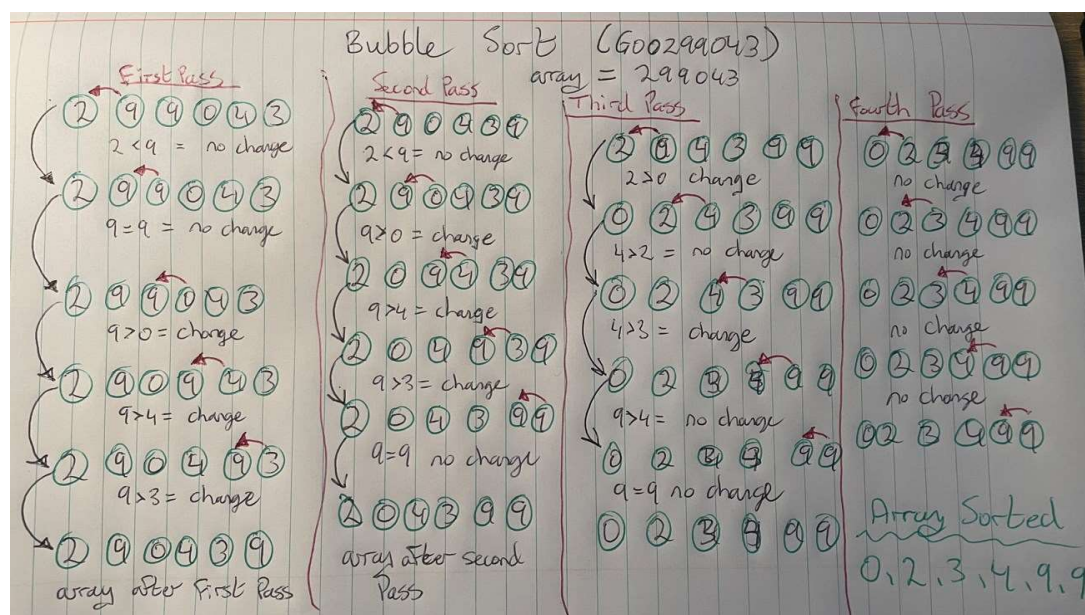 Bubble Sort (G00299043)
array = 299043
First Pass
2 9 9 0 4 3
2 < 9 = no change
2 9 9 0 4 3
9 = 9 = no change
2 9 9 0 4 3
9 > 0 = change
2 9 0 9 4 3
9 > 4 = change
2 9 0 4 9 3
9 > 3 = change
2 9 0 4 3 9
array after First Pass
Second Pass
2 9 0 4 3 9
2 < 9 = no change
2 9 0 4 3 9
9 > 0 = change
2 0 9 4 3 9
9 > 4 = change
2 0 4 9 3 9
9 > 3 = change
2 0 4 3 9 9
9 = 9 no change
2 0 4 3 9 9
array after second
Pass
Third Pass
2 0 4 3 9 9
2 > 0 change
0 2 4 3 9 9
4 > 2 = no change
0 2 4 3 9 9
4 > 3 = change
0 2 3 4 9 9
9 > 4 = no change
0 2 3 4 9 9
9 = 9 no change
0 2 3 4 9 9
Fourth Pass
0 2 3 4 9 9
no change
0 2 3 4 9 9
no change
0 2 3 4 9 9
no change
0 2 3 4 9 9
no change
0 2 3 4 9 9
Array Sorted
0, 2, 3, 4, 9, 9